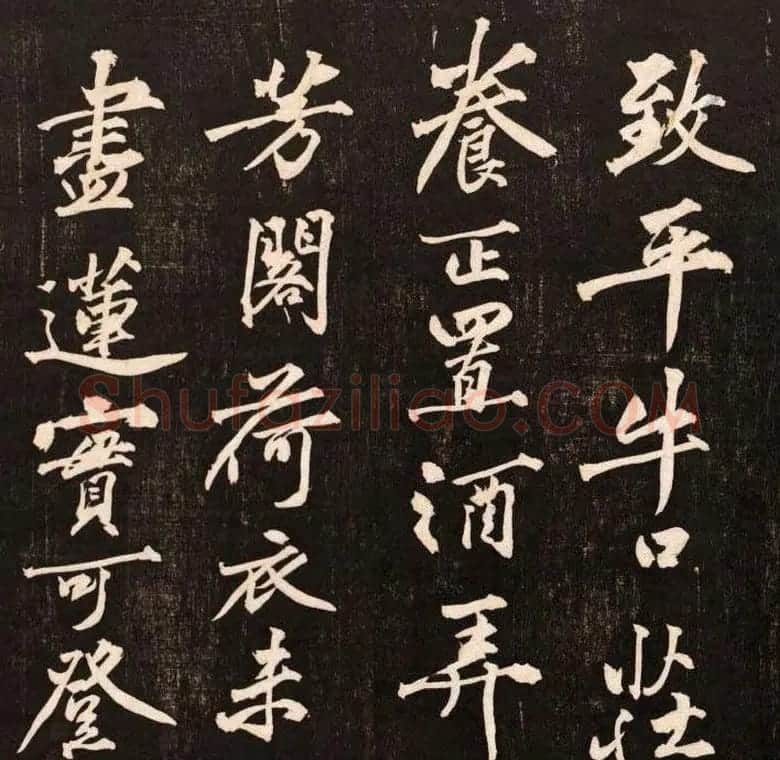 致平牛口莊
養正置酒弄
芳閣荷衣未
盡蓮實可登
Shufaziliao.COM